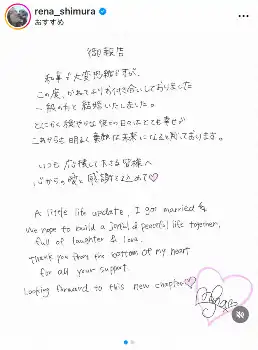 rena_shimura
おすすめ
御報告
私事で大変恐縮ですが、
この度、かねてよりお付き合いしておりました
一般の方と結婚いたしました。
とにかく穏やかな彼との日々はとても幸せで
これからも明るく素敵な未来になると信じております。
いつも応援して下さる皆様へ
心からの愛と感謝を込めて♡
A little life update, I got married &
We hope to build a joyful & peaceful life together,
full of laughter & love.
Thank you from the bottom of my heart
for all your support.
Looking forward to this new chapter♡